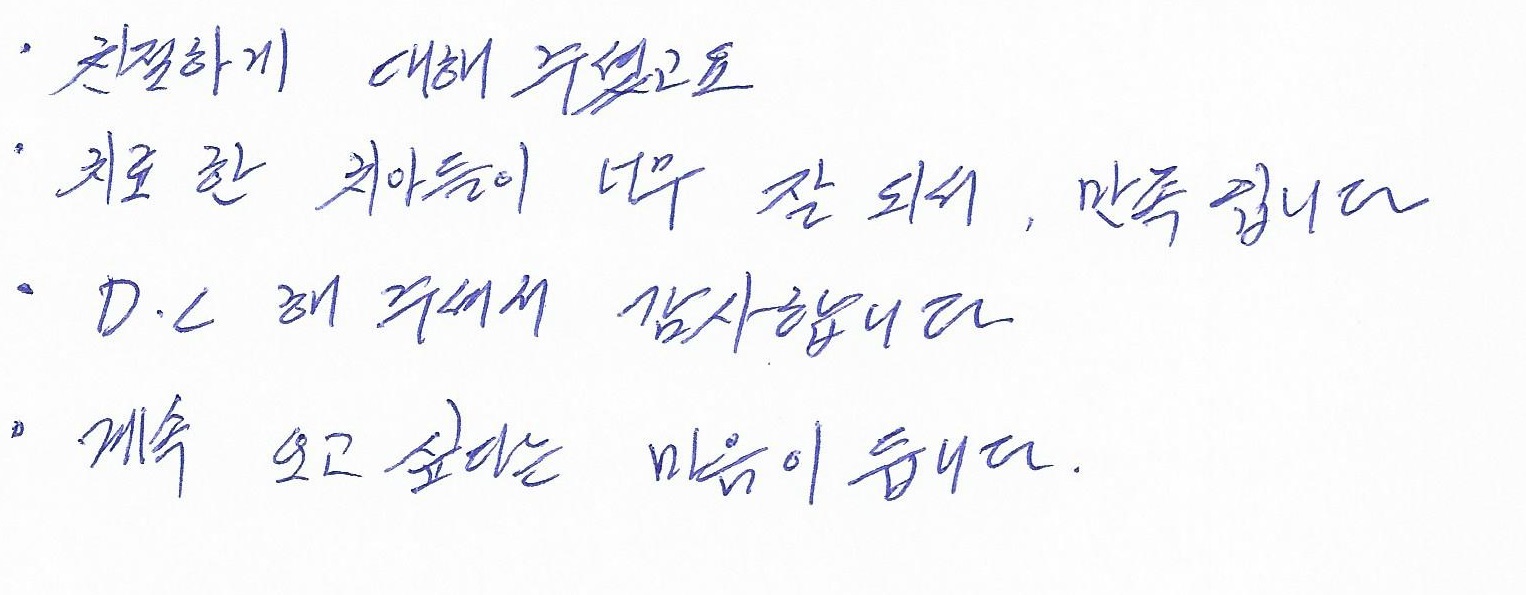 · 친절하게 대해 주셨고요
· 치료 한 치아들이 너무 잘 되서, 만족 입니다
· D.C 해 주셔서 감사합니다
· 계속 오고 싶다는 마음이 듭니다.